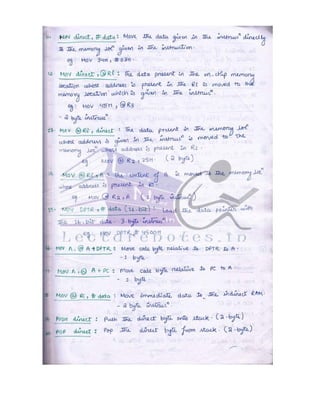 MOV direct, # data : Move the data given in the instrucⁿ directly
to the memory locⁿ given in the instruction.
eg: MOV 34H, # 03H
MOV direct, @Ri : The data present in the on-chip memory
location whose address is present in the Ri is moved to the
memory location which is given in the instrucⁿ.
eg: MOV 45H, @R3
- 2 byte instrucⁿ
MOV @Ri, direct : The data present in the memory locⁿ
whose address is given in the instrucⁿ is moved to the
memory locⁿ whose address is present in Ri.
eg MOV @R2, 25H. (2 byte)
MOV @Ri, A : the content of A is moved to the memory locⁿ
whose address is present in Ri
eg: MOV @R2, A (1 byte instrucⁿ)
MOV DPTR, # data (16-bit) : Load the data pointer with
the 16-bit data - 3 byte instrucⁿ
eg: MOV DPTR, # 4500H
lecturenotes.in
MOV A, @A+DPTR : Move code byte relative to DPTR to A.
- 1 byte
MOV A, @A+PC : Move code byte relative to PC to A
- 1 byte
MOV @Ri, # data : Move immediate data to the indirect RAM
- 2 byte instrucⁿ
PUSH direct : Push the direct byte onto stack. (2-byte)
POP direct : Pop the direct byte from stack. (2-byte)